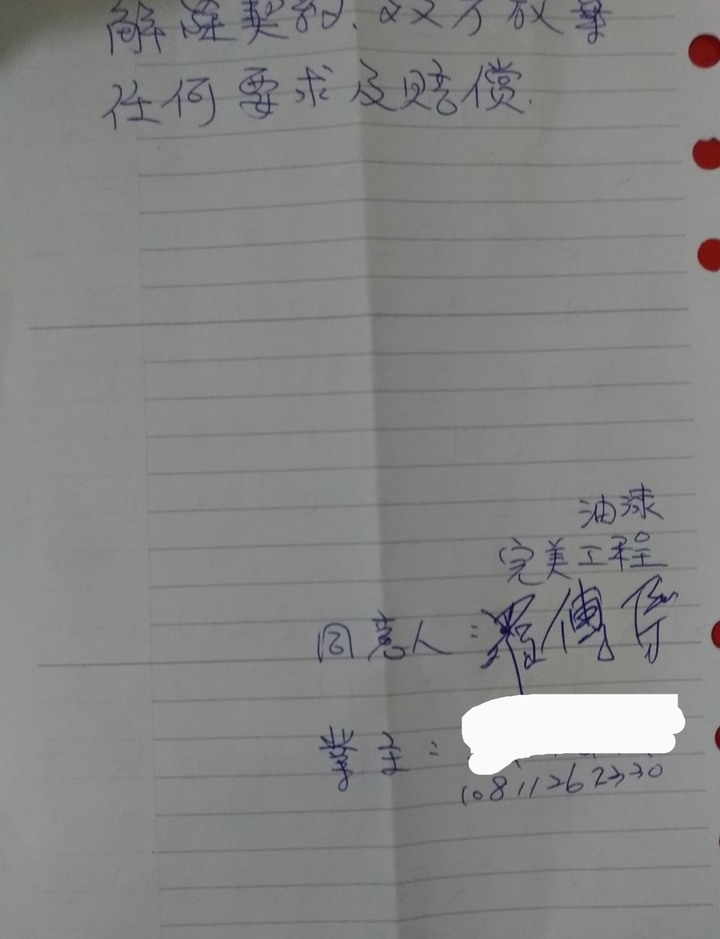 解除契約．双方放棄
任何要求及賠償．
油漆
完美工程
同意人：傅
業主：
1081126 2330